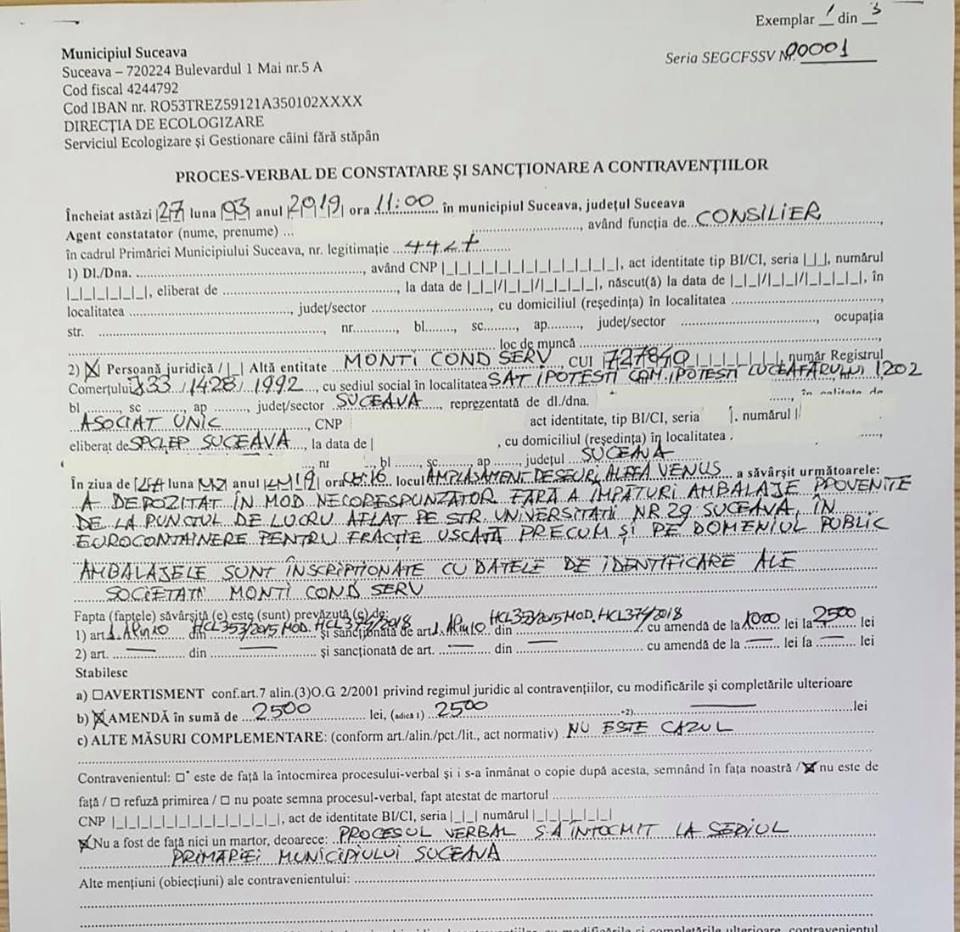 Exemplar 1 din 3
Municipiul Suceava
Seria SEGCFSSV Nr. 00001
Suceava – 720224 Bulevardul 1 Mai nr.5 A
Cod fiscal 4244792
Cod IBAN nr. RO53TREZ59121A350102XXXX
DIRECȚIA DE ECOLOGIZARE
Serviciul Ecologizare și Gestionare câini fără stăpân
PROCES-VERBAL DE CONSTATARE ȘI SANCȚIONARE A CONTRAVENȚIILOR
Încheiat astăzi |27| luna |03| anul |2|0|19| ora 11:00 în municipiul Suceava, județul Suceava
Agent constatator (nume, prenume) ... , având funcția de CONSILIER,
în cadrul Primăriei Municipiului Suceava, nr. legitimație
1) Dl./Dna. ..., având CNP |_|_|_|_|_|_|_|_|_|_|_|_|_|, act identitate tip BI/CI, seria |_|_|, numărul
|_|_|_|_|_|_|, eliberat de ..., la data de |_|_|/|_|_|/|_|_|_|_|, născut(ă) la data de |_|_|/|_|_|/|_|_|_|_|, în
localitatea ..., județ/sector ..., cu domiciliul (reședința) în localitatea ...,
str. ..., nr..., bl..., sc..., ap..., județ/sector ..., ocupația
... loc de muncă ...
2) |X| Persoană juridică / |_| Altă entitate MONTI COND SERV, CUI |727840|_|_|_|_|, număr Registrul
Comerțului J33 / 1428 / 1992, cu sediul social în localitatea SAT IPOTEȘTI COM. IPOTEȘTI LUCEAFĂRULUI 1202
bl ..., sc ..., ap ..., județ/sector SUCEAVA, reprezentată de dl./dna. ..., în calitate de
ASOCIAT UNIC, CNP act identitate, tip BI/CI, seria |. numărul |
eliberat de SPCLEP SUCEAVA, la data de | , cu domiciliul (reședința) în localitatea .
, nr ., bl ..., sc... ap ..., județul SUCEAVA
În ziua de luna anul ora locul AMPLASAMENT DEȘEURI, ALEEA VENUS a săvârșit următoarele:
A DEPOZITAT ÎN MOD NECORESPUNZATOR FĂRĂ A ÎMPĂTURI AMBALAJE PROVENITE
DE LA PUNCTUL DE LUCRU AFLAT PE STR. UNIVERSITATII NR. 29 SUCEAVA, ÎN
EUROCONTAINERE PENTRU FRACȚIE USCATĂ PRECUM ȘI PE DOMENIUL PUBLIC
AMBALAJELE SUNT ÎNSCRIPȚIONATE CU DATELE DE IDENTIFICARE ALE
SOCIETATII MONTI COND SERV
Fapta (faptele) săvârșită (e) este (sunt) prevăzută (e) de:
1) art. din HCL 353/2015 MOD. HCL 374/2018 și sancționată de art. din HCL 353/2015 MOD. HCL 374/2018 cu amendă de la 1000 lei la 2500 lei
2) art. — din — și sancționată de art. — din — cu amendă de la — lei la — lei
Stabilesc
a) □AVERTISMENT conf.art.7 alin.(3)O.G 2/2001 privind regimul juridic al contravențiilor, cu modificările și completările ulterioare
b) X AMENDĂ în sumă de 2500 lei, (adică 1) 2500 -2) — lei
c) ALTE MĂSURI COMPLEMENTARE: (conform art./alin./pct./lit., act normativ) NU ESTE CAZUL
Contravenientul: □ este de față la întocmirea procesului-verbal și i s-a înmânat o copie după acesta, semnând în fața noastră / X nu este de
față / □ refuză primirea / □ nu poate semna procesul-verbal, fapt atestat de martorul ...
CNP |_|_|_|_|_|_|_|_|_|_|_|_|_|, act de identitate BI/CI, seria |_|_| numărul |_|_|_|_|_|_|
X Nu a fost de față nici un martor, deoarece: PROCESUL VERBAL S-A ÎNTOCMIT LA SEDIUL
PRIMARIEI MUNICIPIULUI SUCEAVA
Alte mențiuni (obiecțiuni) ale contravenientului: ...
cu modificările și completările ulterioare, contravenientul